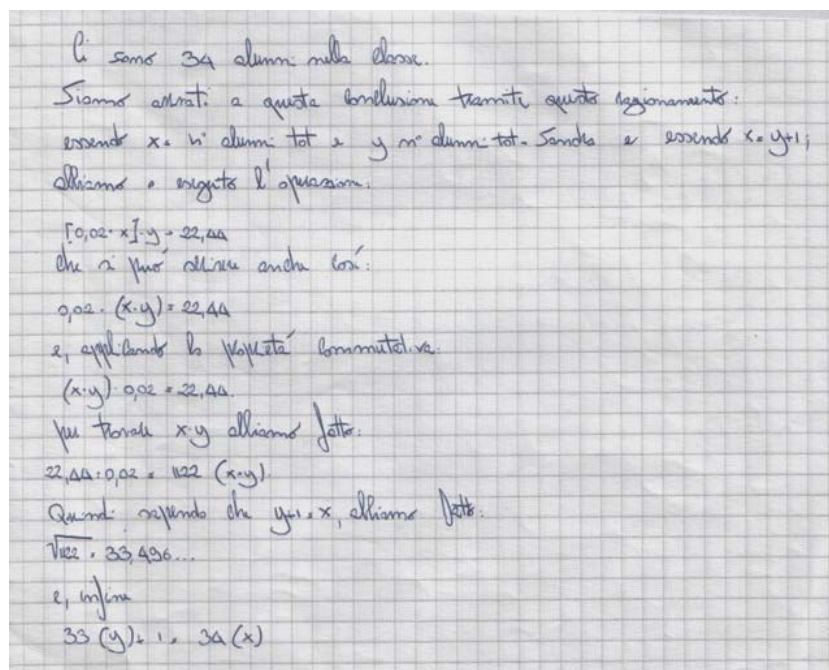 Ci sono 34 alunni nella classe.
Siamo arrivati a questa conclusione tramite questo ragionamento:
essendo x = n° alunni tot e y n° alunni tot - Sandra e essendo x = y+1;
abbiamo eseguito l'operazione:
[0,02 · x] · y = 22,44
che si può scrivere anche così:
0,02 · (x·y) = 22,44
e, applicando la proprietà commutativa:
(x·y) · 0,02 = 22,44.
per trovare x·y abbiamo fatto:
22,44 : 0,02 = 1122 (x·y).
Quindi sapendo che y+1 = x, abbiamo fatto:
√1122 = 33,496...
e, infine
33 (y) + 1 = 34 (x)